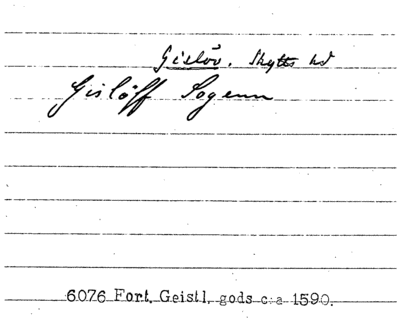 Gislöv. Skytts hd
Gislöff Sogenn
6076 Fort. Geistl. gods c:a 1590.